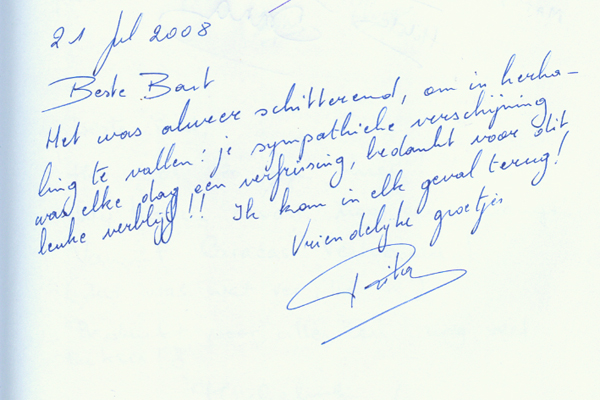 21 Jul 2008
Beste Bart
Het was alweer schitterend, om in herha-
ling te vallen: je sympathieke verschijning
was elke dag een verfrissing, bedankt voor dit
leuke verblijf!! Ik kom in elk geval terug!
Vriendelijke groetjes